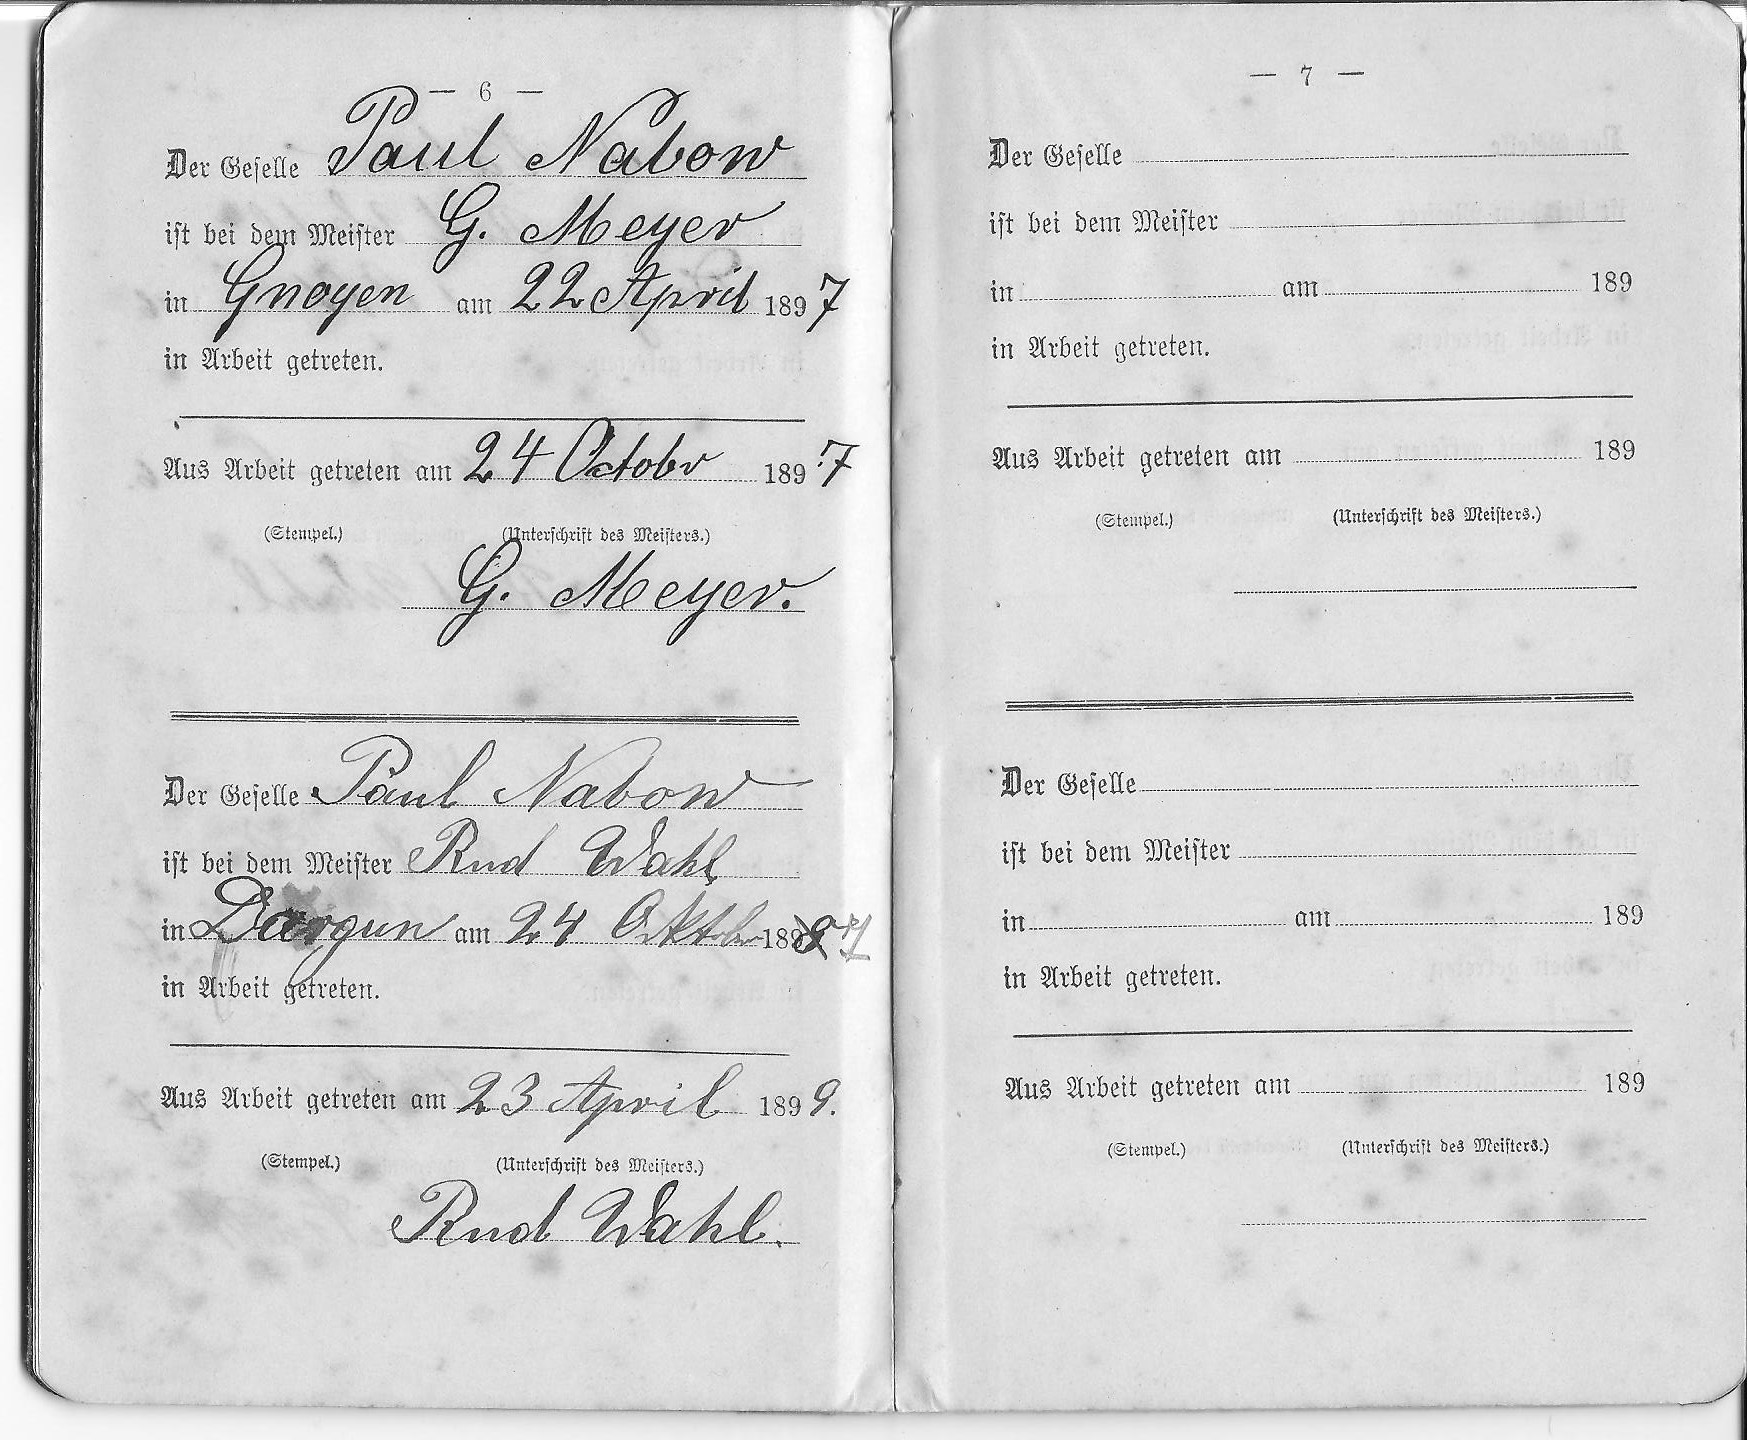 — 6 —
Der Geselle Paul Nabow
ist bei dem Meister G. Meyer
in Gnoyen am 22 April 1897
in Arbeit getreten.
Aus Arbeit getreten am 24 Octobr 1897
(Stempel.) (Unterschrift des Meisters.)
G. Meyer.
Der Geselle Paul Nabow
ist bei dem Meister Rud Wahl
in Dargun am 24 Oktober 1897
in Arbeit getreten.
Aus Arbeit getreten am 23 April 1899.
(Stempel.) (Unterschrift des Meisters.)
Rud Wahl.
— 7 —
Der Geselle
ist bei dem Meister
in am 189
in Arbeit getreten.
Aus Arbeit getreten am 189
(Stempel.) (Unterschrift des Meisters.)
Der Geselle
ist bei dem Meister
in am 189
in Arbeit getreten.
Aus Arbeit getreten am 189
(Stempel.) (Unterschrift des Meisters.)